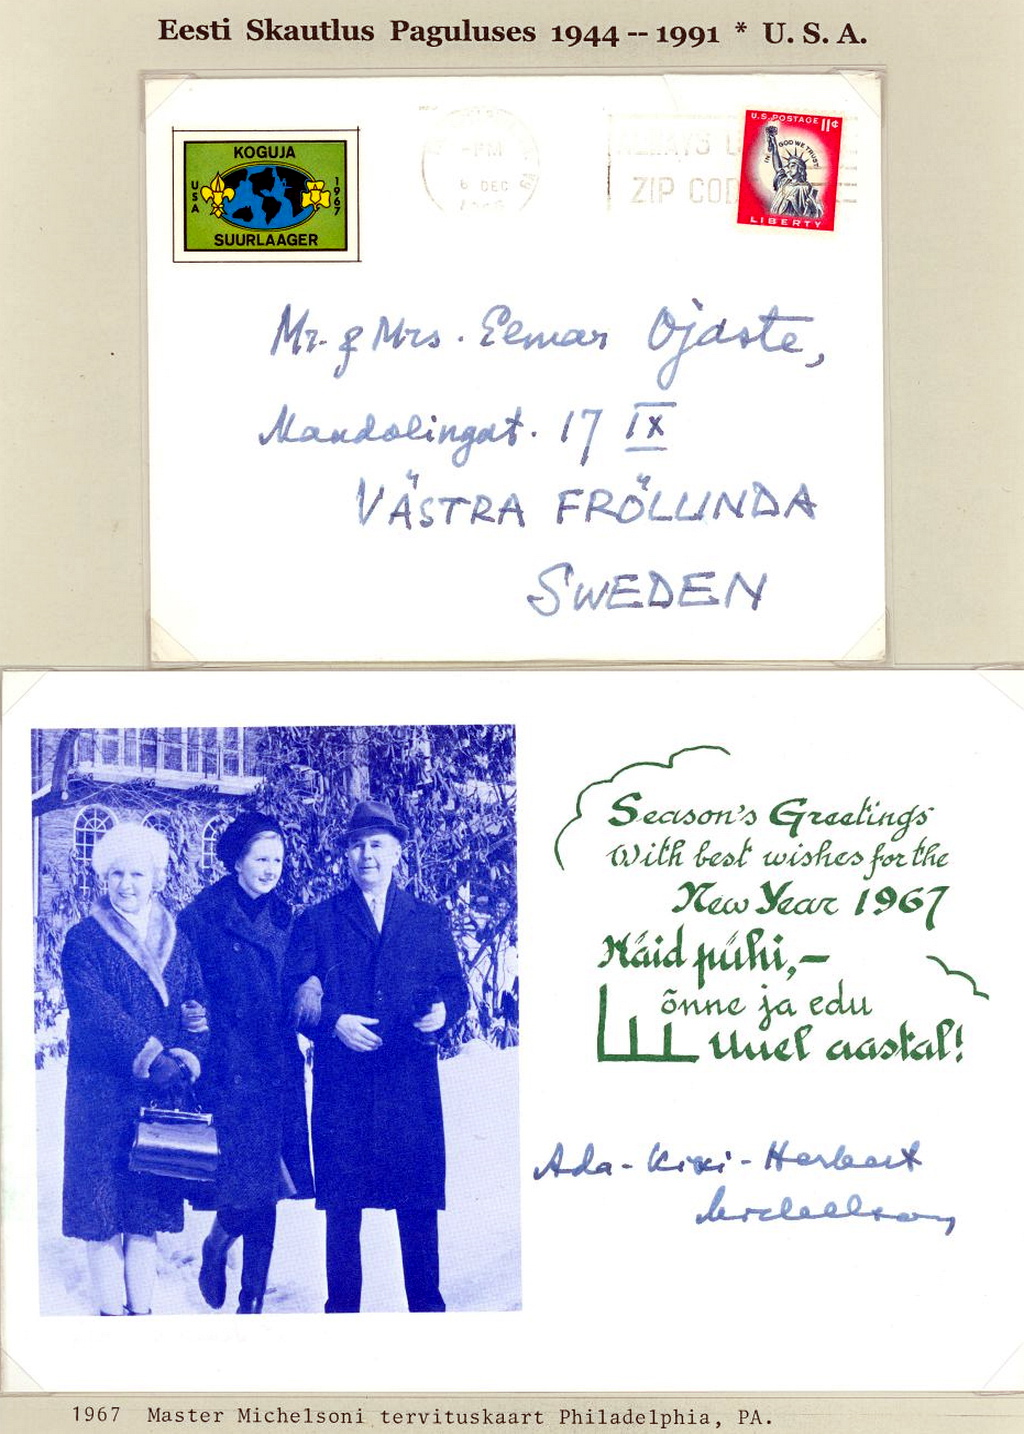 Eesti Skautlus Paguluses 1944 -- 1991 * U. S. A.
KOGUJA
USA
1967
SUURLAAGER
-PM
6 DEC
ZIP COD
U.S. POSTAGE 11¢
IN GOD WE TRUST
LIBERTY
Mr. & Mrs. Elmar Ojaste,
Mandolingat. 17 IX
VÄSTRA FRÖLUNDA
SWEDEN
Season's Greetings
With best wishes for the
New Year 1967
Häid pühi,-
õnne ja edu
Uuel aastal!
Ada - Kiki - Herbert
Michelson
1967 Master Michelsoni tervituskaart Philadelphia, PA.